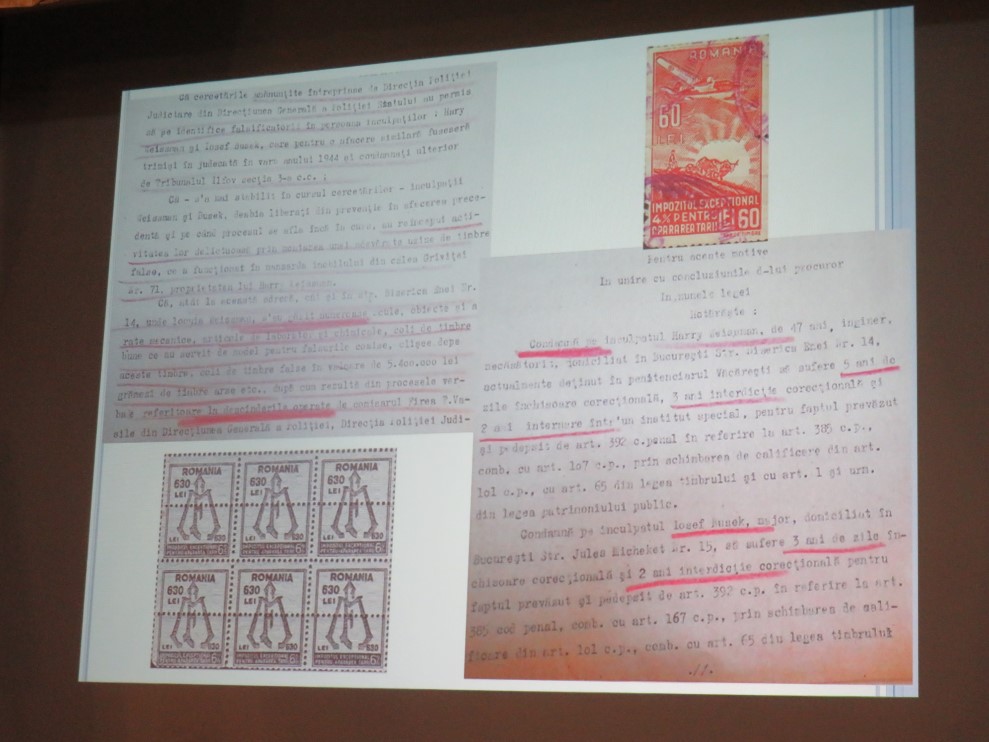 Că cercetările amănunțite întreprinse de Direcția Poliției
Judiciare din Direcțiunea Generală a Poliției Statului au permis
să se identifice falsificatorii în persoana inculpaților : Harry
Geissman și Iosef Busek, care pentru o afacere similară fuseseră
trimiși în judecată în vara anului 1944 și condamnați ulterior
de Tribunalul Ilfov secția 3-a c.c. ;
Că - s'a mai stabilit în cursul cercetărilor - inculpații
Geissman și Busek, deabia liberați din prevenție în afacerea prece-
dentă și pe când procesul se afla încă în curs, au reînceput acti-
vitatea lor delictuoasă prin montarea unei adevărate uzine de timbre
false, ce a funcționat în mansarda imobilului din calea Griviței
Nr. 71, proprietatea lui Harry Geissman.
Că, atât la această adresă, cât și în str. Biserica Enei Nr.
14, unde locuia Geissman, s'au găsit numeroase scule, obiecte și a
rate mecanice, articole de laborator și chimicale, coli de timbre
bune ce au servit de model pentru falsurile comise, clișee după
aceste timbre, coli de timbre false în valoare de 5.400.000 lei
grămezi de timbre arse etc., după cum rezultă din procesele ver-
bale referitoare la descinderile operate de comisarul Firea P.Va-
sile din Direcțiunea Generală a Poliției, Direcția Poliției Judi-
ROMANIA
60
LEI
IMPOZITUL EXCEPȚIONAL
4% PENTRU
APĂRAREA ȚĂRII
LEI 60
Pentru aceste motive
In unire cu concluziunile d-lui procuror
In numele legei
Hotărește :
Condamnă pe inculpatul Harry Geissman, de 47 ani, inginer,
necăsătorit, domiciliat în București Str. Biserica Enei Nr. 14,
actualmente deținut în penitenciarul Văcărești să sufere 5 ani de
zile închisoare corecțională, 3 ani interdicție corecțională și
2 ani internare într'un institut special, pentru faptul prevăzut
și pedepsit de art. 392 c.penal în referire la art. 385 c.p.,
comb. cu art. 167 c.p., prin schimbarea de calificare din art.
lol c.p., cu art. 65 din legea timbrului și cu art. 1 și urm.
din legea patrimoniului public.
Condamnă pe inculpatul Iosef Busek, major, domiciliat în
București Str. Jules Michelet Nr. 15, să sufere 3 ani de zile în-
chisoare corecțională și 2 ani interdicție corecțională pentru
faptul prevăzut și pedepsit de art. 392 c.p. în referire la art.
385 cod penal, comb. cu art. 167 c.p., prin schimbarea de cali-
ficare din art. lol c.p., comb. cu art. 65 din legea timbrului
./.
ROMANIA ROMANIA ROMANIA
630 630 630
LEI LEI LEI
630 630 630
ROMANIA ROMANIA ROMANIA
630 630 630
LEI LEI LEI
630 630 630